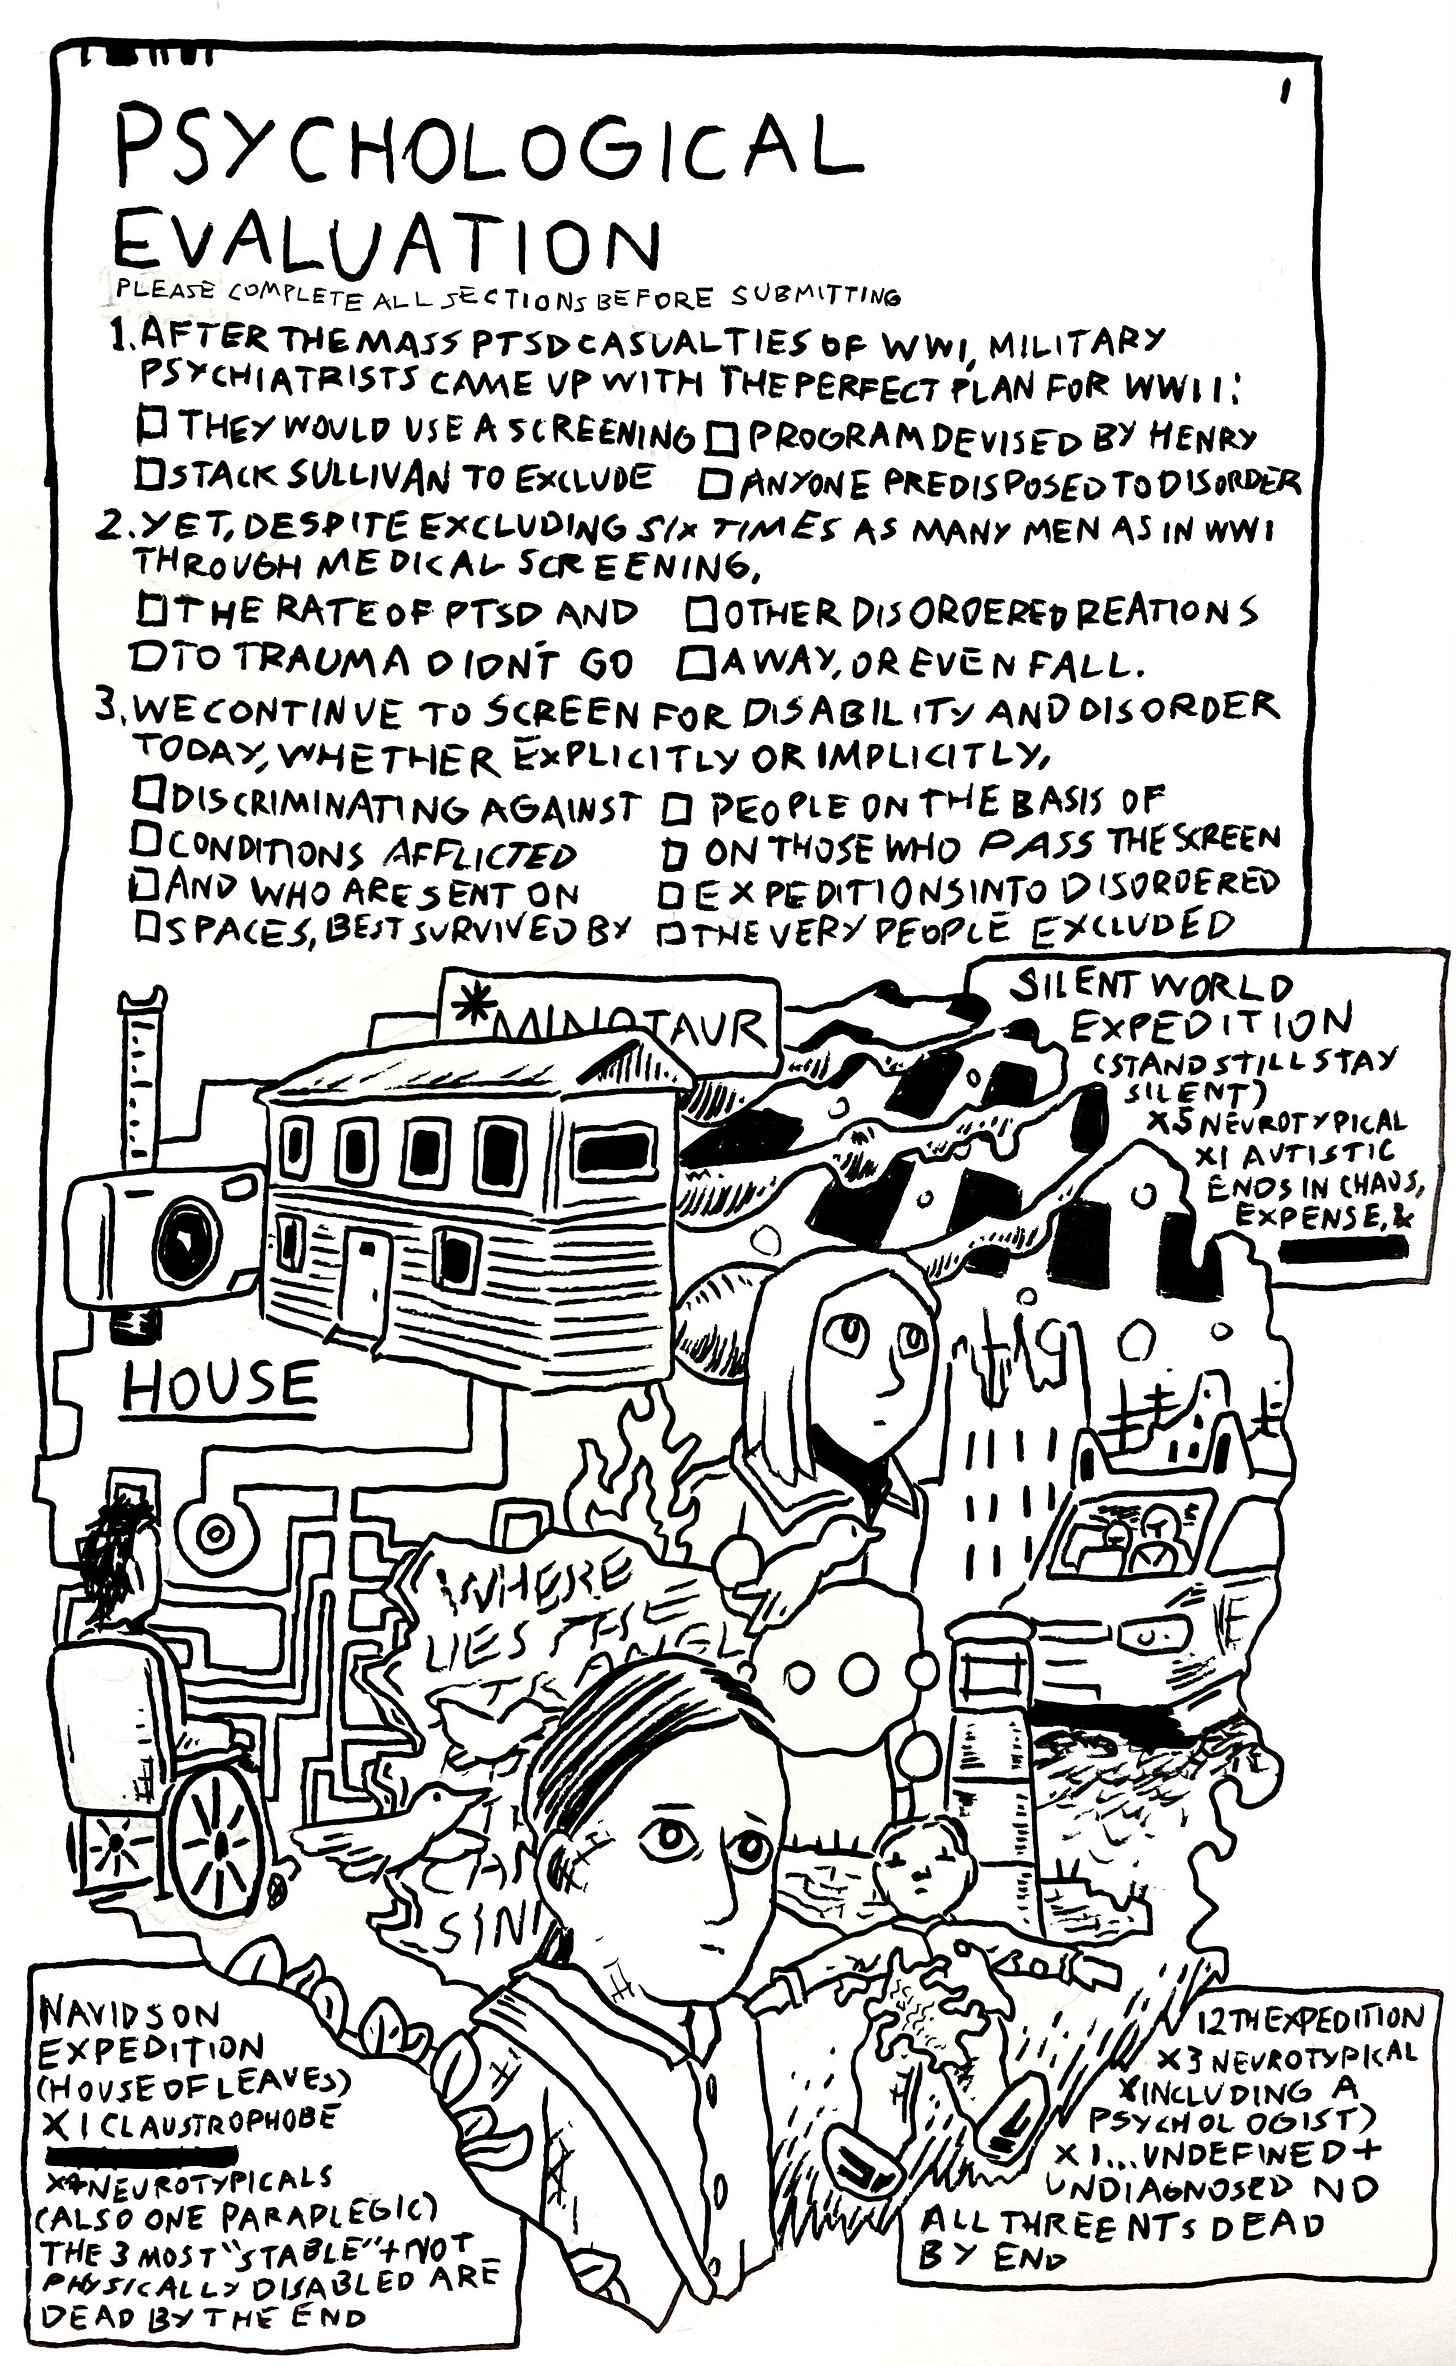 1
PSYCHOLOGICAL
EVALUATION
PLEASE COMPLETE ALL SECTIONS BEFORE SUBMITTING
1. AFTER THE MASS PTSD CASUALTIES OF WWI, MILITARY
PSYCHIATRISTS CAME UP WITH THE PERFECT PLAN FOR WWII:
THEY WOULD USE A SCREENING PROGRAM DEVISED BY HENRY
STACK SULLIVAN TO EXCLUDE ANYONE PREDISPOSED TO DISORDER
2. YET, DESPITE EXCLUDING SIX TIMES AS MANY MEN AS IN WWI
THROUGH MEDICAL SCREENING,
THE RATE OF PTSD AND OTHER DISORDERED REATIONS
TO TRAUMA DIDN'T GO AWAY, OR EVEN FALL.
3. WE CONTINUE TO SCREEN FOR DISABILITY AND DISORDER
TODAY, WHETHER EXPLICITLY OR IMPLICITLY,
DISCRIMINATING AGAINST PEOPLE ON THE BASIS OF
CONDITIONS AFFLICTED ON THOSE WHO PASS THE SCREEN
AND WHO ARE SENT ON EXPEDITIONS INTO DISORDERED
SPACES, BEST SURVIVED BY THE VERY PEOPLE EXCLUDED
*MINOTAUR
SILENT WORLD
EXPEDITION
(STAND STILL STAY
SILENT)
X5 NEUROTYPICAL
X1 AUTISTIC
ENDS IN CHAOS,
EXPENSE, &
HOUSE
WHERE
LIES THE
STRANGL
SIN
NAVIDSON
EXPEDITION
(HOUSE OF LEAVES)
X 1 CLAUSTROPHOBE
X4 NEUROTYPICALS
(ALSO ONE PARAPLEGIC)
THE 3 MOST "STABLE" + NOT
PHYSICALLY DISABLED ARE
DEAD BY THE END
12TH EXPEDITION
X 3 NEUROTYPICAL
(INCLUDING A
PSYCHOLOGIST)
X 1... UNDEFINED +
UNDIAGNOSED ND
ALL THREE NTs DEAD
BY END